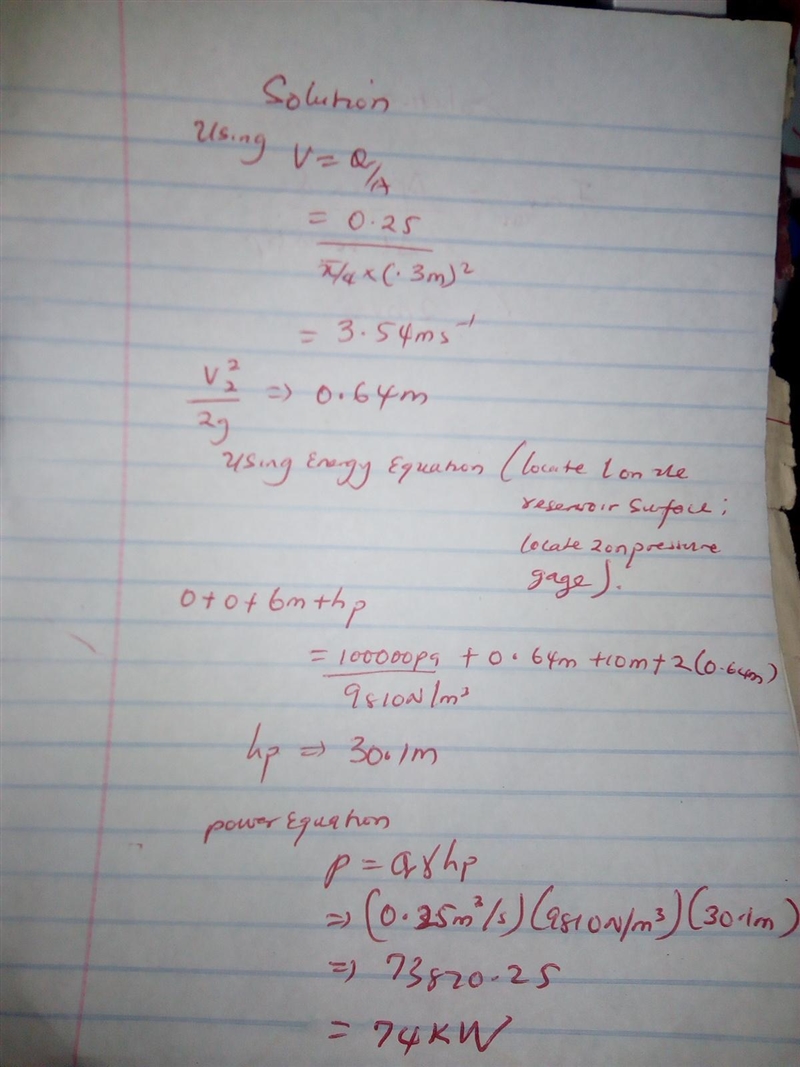 Solution
Using V = Q/A
= 0.25
π/4 × (.3m)²
= 3.54ms⁻¹
V₂² => 0.64m
2g
Using Energy Equation (locate 1 on the
reservoir surface;
locate 2 on pressure
gage).
0+0+6m+hp
= 100000Pa + 0.64m + 10m + 2(0.64m)
9810N/m³
hp => 30.1m
power Equation
P = Qγhp
=> (0.25m³/s)(9810N/m³)(30.1m)
=> 73820.25
= 74KW